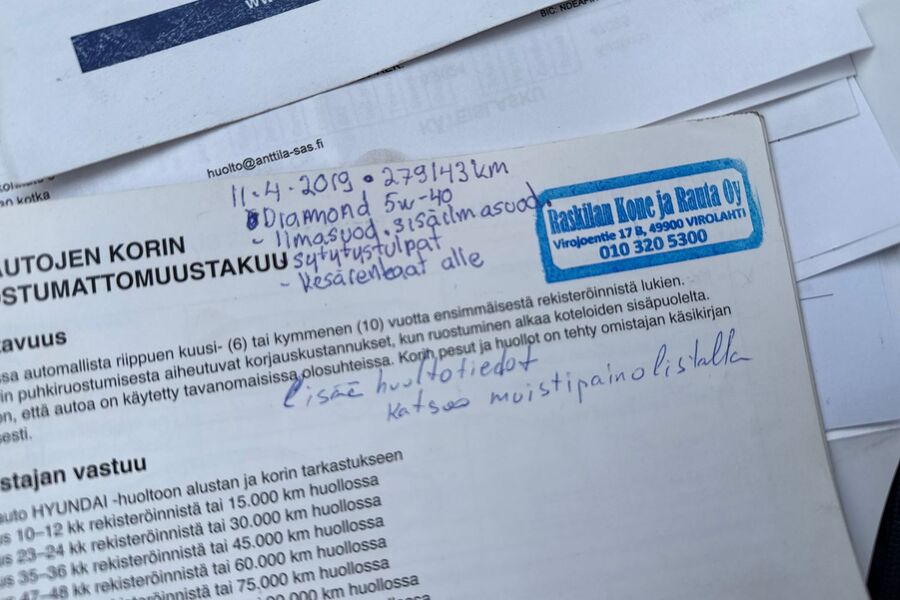 BIC: NDEAFI
KÄTEISLASKU
huolto@anttila-sas.fi
kotka
11.4.2019 • 279143 km
Diamond 5w-40
- ilmasuod. sisäilmasuod.
sytytystulpat
- kesärenkaat alle
Raskilan Kone ja Rauta Oy
Virojoentie 17 B, 49900 VIROLAHTI
010 320 5300
AUTOJEN KORIN
OSTUMATTOMUUSTAKUU
avuus
ssa automallista riippuen kuusi- (6) tai kymmenen (10) vuotta ensimmäisestä rekisteröinnistä lukien.
in puhkiruostumisesta aiheutuvat korjauskustannukset, kun ruostuminen alkaa koteloiden sisäpuolelta.
en, että autoa on käytetty tavanomaisissa olosuhteissa. Korin pesut ja huollot on tehty omistajan käsikirjan
sesti.
lisää huoltotiedot
katso muistipainolistalla
stajan vastuu
auto HYUNDAI -huoltoon alustan ja korin tarkastukseen
us 10–12 kk rekisteröinnistä tai 15.000 km huollossa
us 23–24 kk rekisteröinnistä tai 30.000 km huollossa
us 35–36 kk rekisteröinnistä tai 45.000 km huollossa
us 47–48 kk rekisteröinnistä tai 60.000 km huollossa
rekisteröinnistä tai 75.000 km huollossa
km huollossa